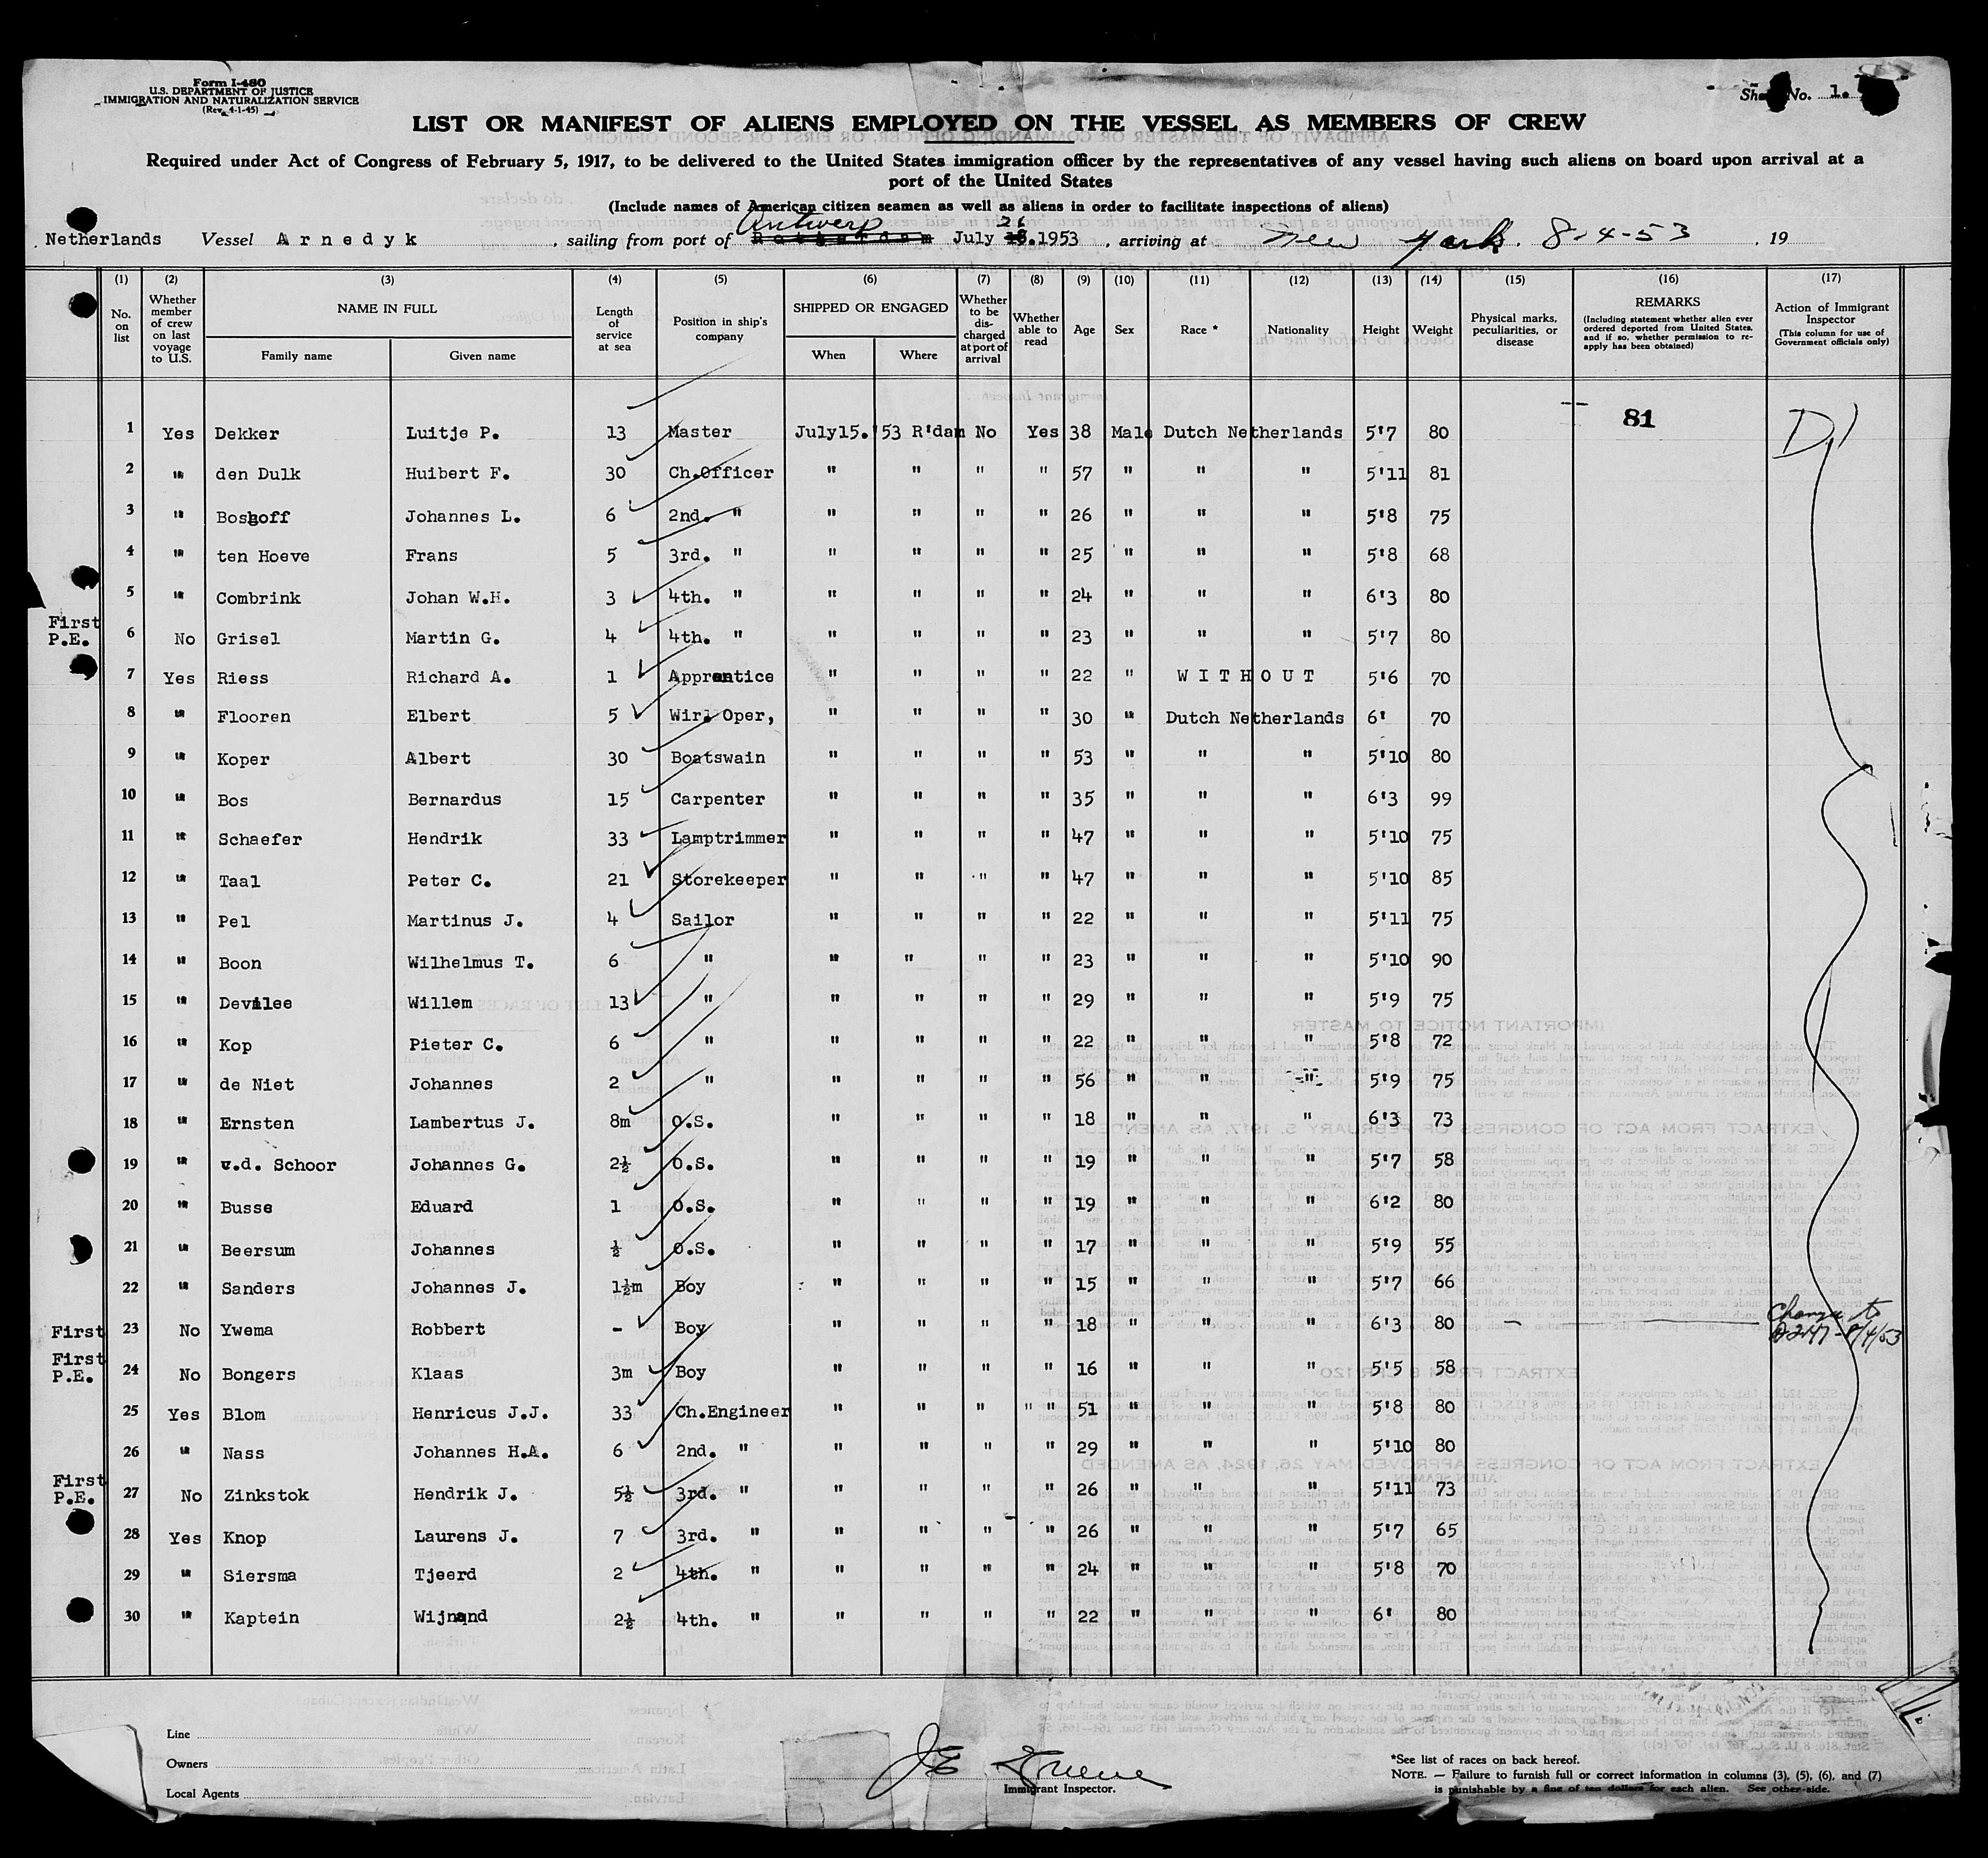 Form I-480
U.S. DEPARTMENT OF JUSTICE
IMMIGRATION AND NATURALIZATION SERVICE
(Rev. 4-1-45)
No. 1.
LIST OR MANIFEST OF ALIENS EMPLOYED ON THE VESSEL AS MEMBERS OF CREW
Required under Act of Congress of February 5, 1917, to be delivered to the United States immigration officer by the representatives of any vessel having such aliens on board upon arrival at a
port of the United States
(Include names of American citizen seamen as well as aliens in order to facilitate inspections of aliens)
Antwerp 26
Netherlands Vessel Arnedyk, sailing from port of July .1953, arriving at New York. 8-4-53, 19
(1) (2) (3) (4) (5) (6) (7) (8) (9) (10) (11) (12) (13) (14) (15) (16) (17)
No. on list
Whether member of crew on last voyage to U.S.
NAME IN FULL
Family name
Given name
Length of service at sea
Position in ship's company
SHIPPED OR ENGAGED
When
Where
Whether to be discharged at port of arrival
Whether able to read
Age
Sex
Race *
Nationality
Height
Weight
Physical marks, peculiarities, or disease
REMARKS
(Including statement whether alien ever ordered deported from United States, and if so, whether permission to re-apply has been obtained)
Action of Immigrant Inspector
(This column for use of Government officials only)
81
1 Yes Dekker Luitje P. 13 Master July15.'53 R'dam No Yes 38 Male Dutch Netherlands 5'7 80
2 " den Dulk Huibert F. 30 Ch.Officer " " " " 57 " " " 5'11 81
3 " Boshoff Johannes L. 6 2nd. " " " " " 26 " " " 5'8 75
4 " ten Hoeve Frans 5 3rd. " " " " " 25 " " " 5'8 68
5 " Combrink Johan W.H. 3 4th. " " " " " 24 " " " 6'3 80
First P.E. 6 No Grisel Martin G. 4 4th. " " " " " 23 " " " 5'7 80
7 Yes Riess Richard A. 1 Apprentice " " " " 22 " WITHOUT 5'6 70
8 " Flooren Elbert 5 Wir. Oper, " " " " 30 " Dutch Netherlands 6' 70
9 " Koper Albert 30 Boatswain " " " " 53 " " " 5'10 80
10 " Bos Bernardus 15 Carpenter " " " " 35 " " " 6'3 99
11 " Schaefer Hendrik 33 Lamptrimmer " " " " 47 " " " 5'10 75
12 " Taal Peter C. 21 Storekeeper " " " " 47 " " " 5'10 85
13 " Pel Martinus J. 4 Sailor " " " " 22 " " " 5'11 75
14 " Boon Wilhelmus T. 6 " " " " " 23 " " " 5'10 90
15 " Devilee Willem 13 " " " " " 29 " " " 5'9 75
16 " Kop Pieter C. 6 " " " " " 22 " " " 5'8 72
17 " de Niet Johannes 2 " " " " " 56 " " " 5'9 75
18 " Ernsten Lambertus J. 8m O.S. " " " " 18 " " " 6'3 73
19 " v.d. Schoor Johannes G. 2½ O.S. " " " " 19 " " " 5'7 58
20 " Busse Eduard 1 O.S. " " " " 19 " " " 6'2 80
21 " Beersum Johannes ½ O.S. " " " " 17 " " " 5'9 55
22 " Sanders Johannes J. 1½m Boy " " " " 15 " " " 5'7 66
First 23 No Ywema Robbert - Boy " " " " 18 " " " 6'3 80 Change to
First P.E. 24 No Bongers Klaas 3m Boy " " " " 16 " " " 5'5 58
25 Yes Blom Henricus J.J. 33 Ch.Engineer " " " " " 51 " " " 5'8 80
26 " Nass Johannes H.A. 6 2nd. " " " " " 29 " " " 5'10 80
First P.E. 27 No Zinkstok Hendrik J. 5½ 3rd. " " " " " 26 " " " 5'11 73
28 Yes Knop Laurens J. 7 3rd. " " " " " 26 " " " 5'7 65
29 " Siersma Tjeerd 2 4th. " " " " " 24 " " " 5'8 70
30 " Kaptein Wijnand 2½ 4th. " " " " " 22 " " " 6' 80
Line
Owners
Local Agents
J E Greene
Immigrant Inspector.
*See list of races on back hereof.
NOTE. — Failure to furnish full or correct information in columns (3), (5), (6), and (7)
is punishable by a fine of ten dollars for each alien. See other side.